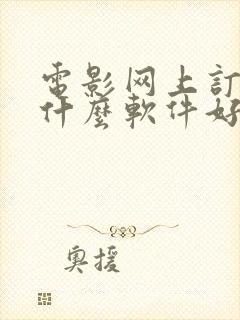 電影网上訂
什麼軟件好
奧援